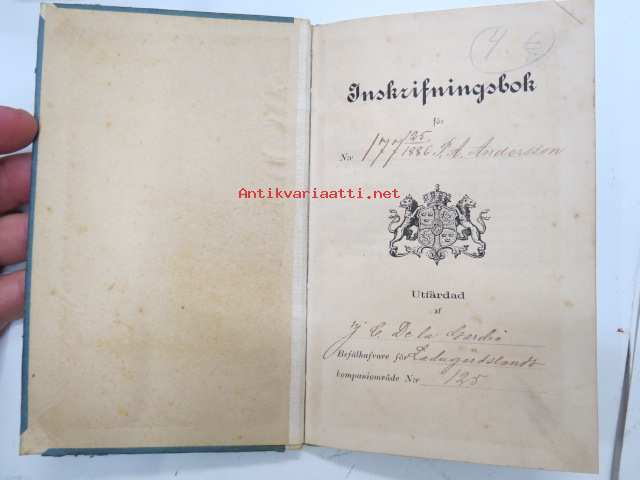 Inskrifningsbok
för
N:r 177 125/1886 P. A. Andersson
Antikvariaatti.net
Utfärdad
af
J C De la Gardie
Befälhafvare för Ladugårdslands
kompaniområde N:r 125